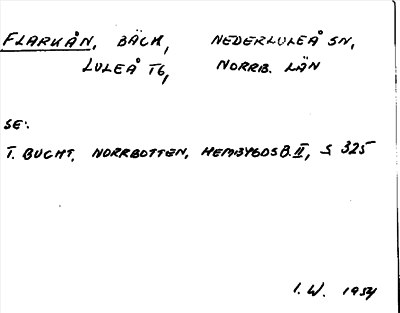 FLARKÅN, BÄCK, NEDERLULEÅ SN,
LULEÅ TG, NORRB. LÄN
SE:
T. BUCHT, NORRBOTTEN, HEMBYGDSB. II, S 325
I. W. 1954